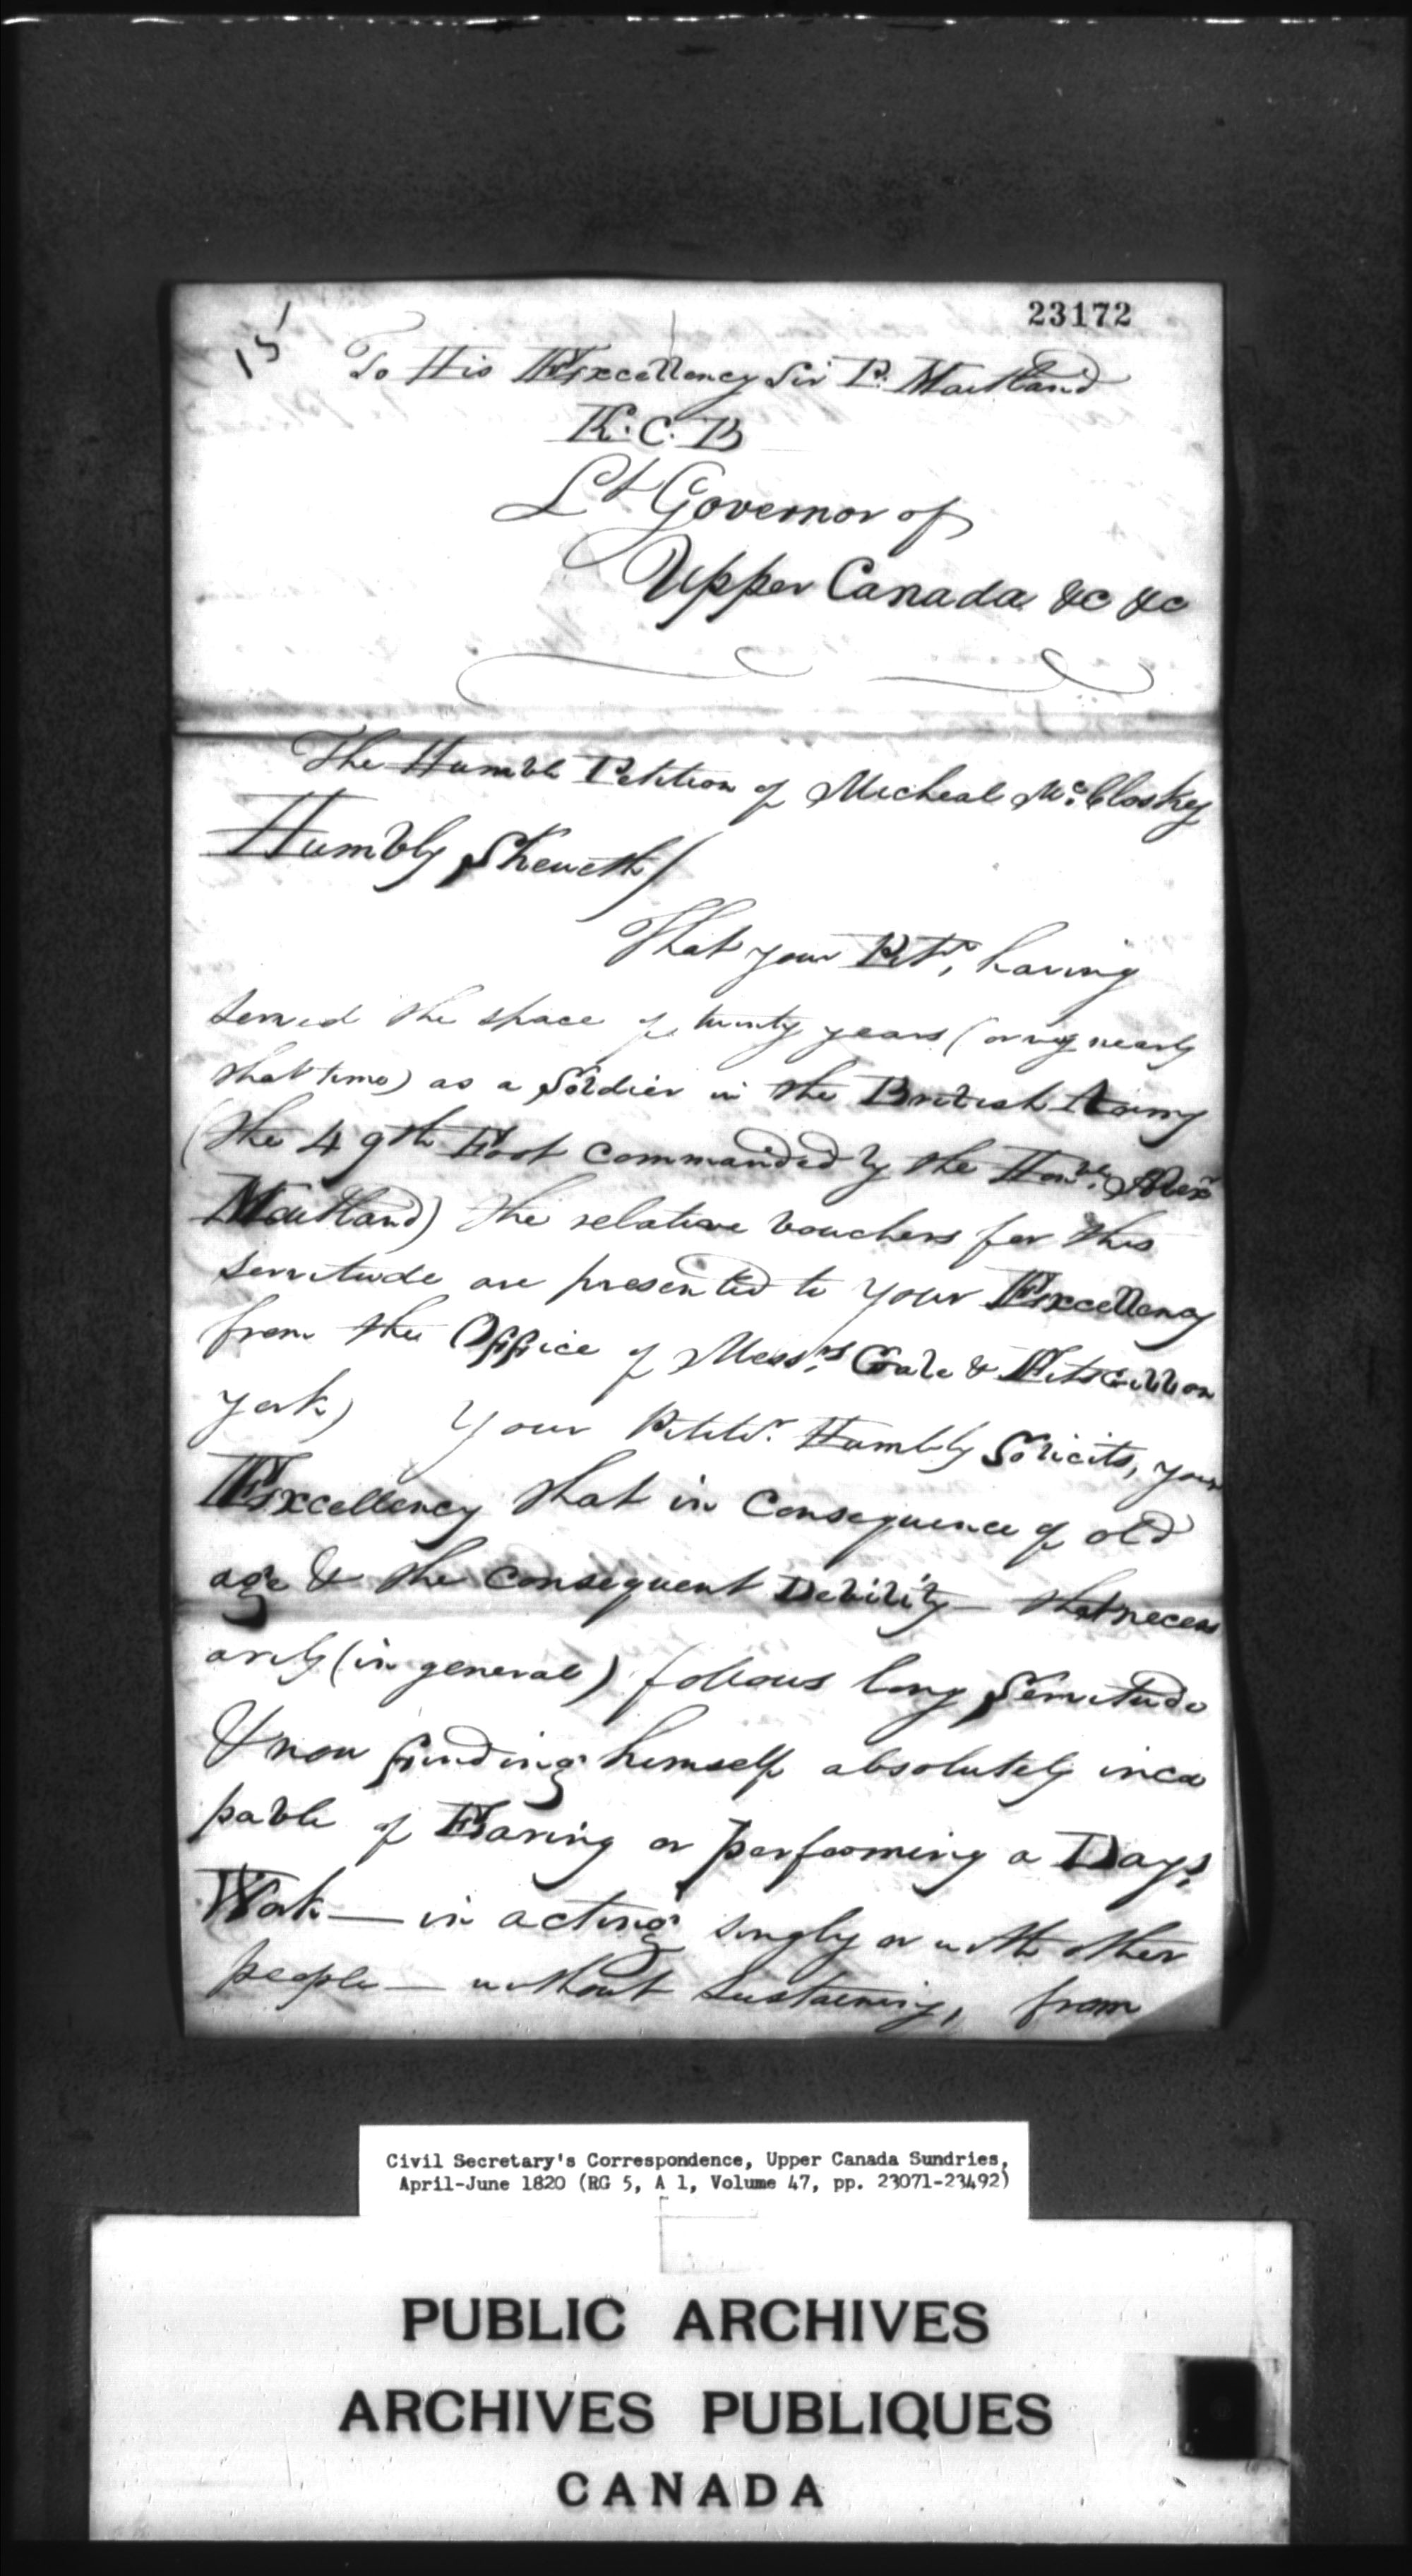 23172
15
To His Excellency Sir P. Maitland
K. C. B
Lt Governor of
Upper Canada &c &c
The Humble Petition of Micheal Mc.Closkey
Humbly Sheweth/
That your Petr, having
served the space of twenty years (or nearly
that time) as a Soldier in the British Army
(the 49th Foot commanded by the Honble. Alexr
Maitland) the relative vouchers for this
servitude are presented to your Excellency
from the Office of Messrs & FitsGibbon
york) Your Petitr. Humbly Solicits, your
Excellency that in Consequence of old
age & the consequent Debility — that necess
arily (in general) follows long Servitude
& now finding himself absolutely inca
pable of or performing a Days,
Work — in acting singly or with other
people — without sustaining, from
Civil Secretary's Correspondence, Upper Canada Sundries,
April-June 1820 (RG 5, A 1, Volume 47, pp. 23071-23492)
PUBLIC ARCHIVES
ARCHIVES PUBLIQUES
CANADA